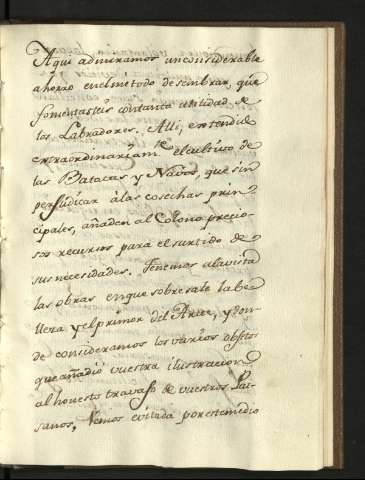 Aqui admiramos un considerable
ahorro en el metodo de sembrar, que
fomentasteis con tanta utilidad de
los Labradores. Alli, extendido
extraordinariam.te el cultivo de
las Batatas y Navos, que sin
perjudicar à las cosechas prin
cipales, añaden al Colono precio-
sos recursos para el surtido de
sus necesidades. Tenemos ala vista
las obras en que sobresale la be
lleza y el primor del Arte, y don
de consideramos los varios objetos
que añadió vuestra ilustracion
al honesto travajo de vuestros Pai-
sanos, Vemos evitada por este medio